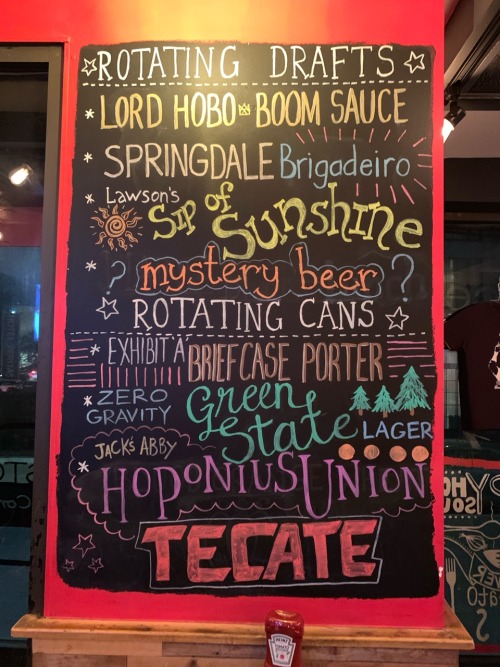 ROTATING DRAFTS
LORD HOBO BOOM SAUCE
SPRINGDALE Brigadeiro
LAWSON'S
Sip of Sunshine
? mystery beer ?
ROTATING CANS
EXHIBIT A BRIEFCASE PORTER
ZERO GRAVITY
Green State LAGER
JACK'S ABBY
HOPONIUS UNION
TECATE
HEINZ